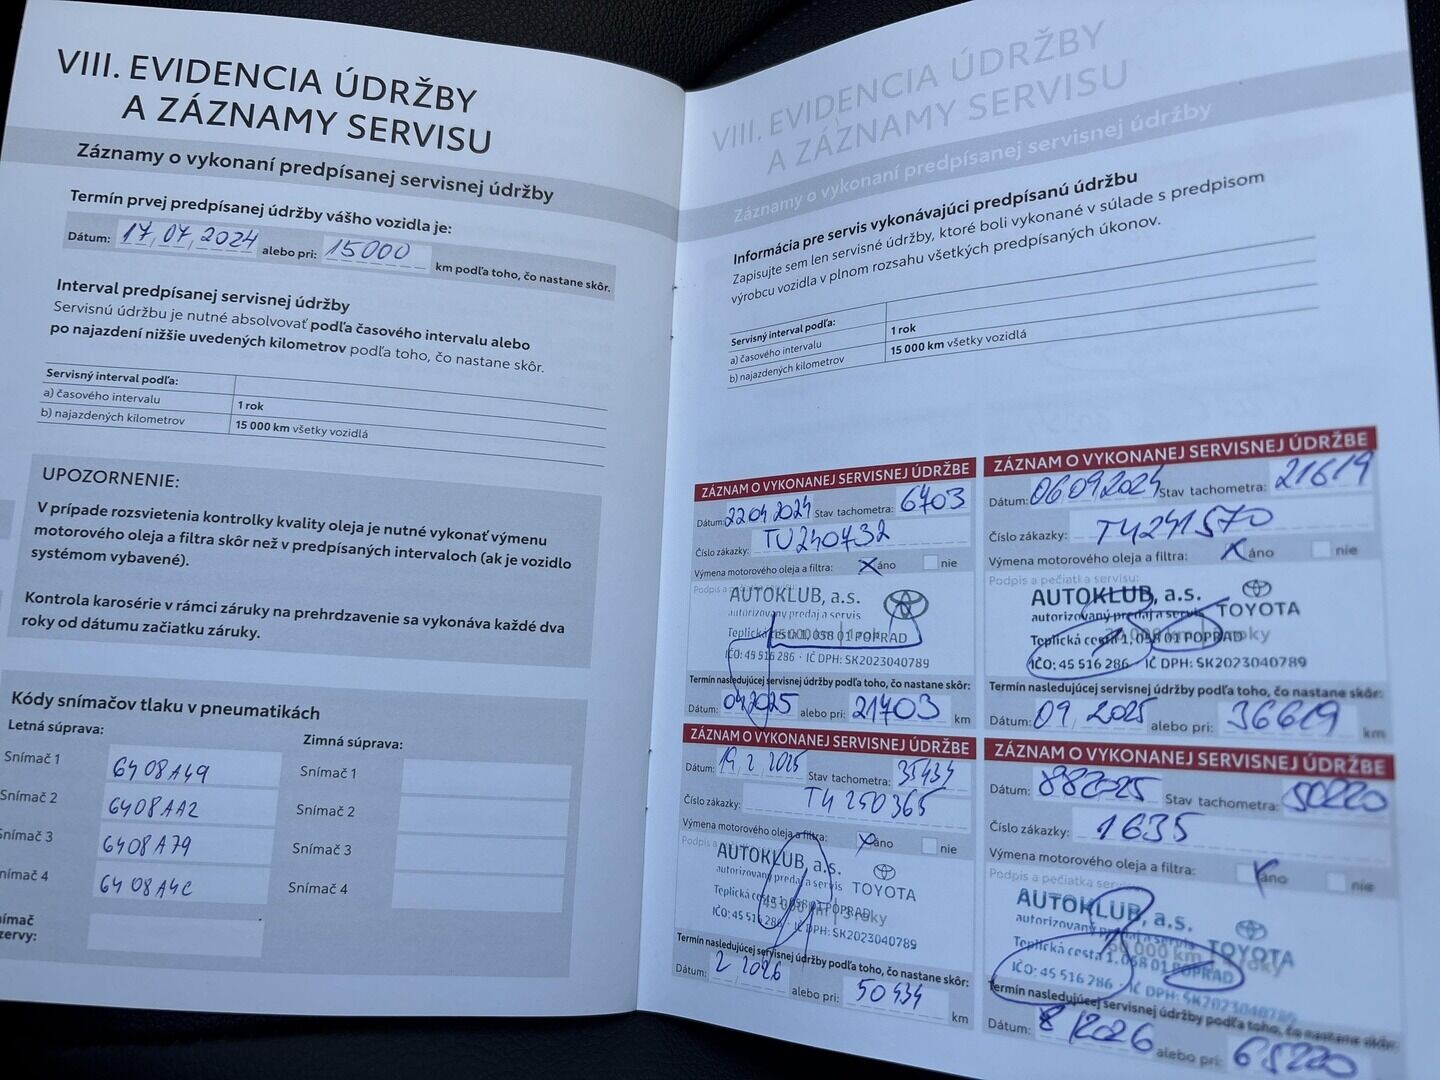 VIII. EVIDENCIA ÚDRŽBY
A ZÁZNAMY SERVISU
Záznamy o vykonaní predpísanej servisnej údržby
Termín prvej predpísanej údržby vášho vozidla je:
Dátum: 17.07.2024 alebo pri: 15000 km podľa toho, čo nastane skôr.
Interval predpísanej servisnej údržby
Servisnú údržbu je nutné absolvovať podľa časového intervalu alebo
po najazdení nižšie uvedených kilometrov podľa toho, čo nastane skôr.
Servisný interval podľa:
a) časového intervalu 1 rok
b) najazdených kilometrov 15 000 km všetky vozidlá
UPOZORNENIE:
V prípade rozsvietenia kontrolky kvality oleja je nutné vykonať výmenu
motorového oleja a filtra skôr než v predpísaných intervaloch (ak je vozidlo
systémom vybavené).
Kontrola karosérie v rámci záruky na prehrdzavenie sa vykonáva každé dva
roky od dátumu začiatku záruky.
Kódy snímačov tlaku v pneumatikách
Letná súprava: Zimná súprava:
Snímač 1 6408A49 Snímač 1
Snímač 2 6408AA2 Snímač 2
Snímač 3 6408A79 Snímač 3
nímač 4 6408A4C Snímač 4
nímač
zervy:
VIII. EVIDENCIA ÚDRŽBY
A ZÁZNAMY SERVISU
Záznamy o vykonaní predpísanej servisnej údržby
Informácia pre servis vykonávajúci predpísanú údržbu
Zapisujte sem len servisné údržby, ktoré boli vykonané v súlade s predpisom
výrobcu vozidla v plnom rozsahu všetkých predpísaných úkonov.
Servisný interval podľa:
a) časového intervalu 1 rok
b) najazdených kilometrov 15 000 km všetky vozidlá
ZÁZNAM O VYKONANEJ SERVISNEJ ÚDRŽBE
Dátum: 22 04 2024 Stav tachometra: 6403
Číslo zákazky: TU240432
Výmena motorového oleja a filtra: X áno nie
Podpis a
AUTOKLUB, a.s.
autorizovaný predaj a servis
Teplická cesta 1, 058 01 POPRAD
IČO: 45 516 286 · IČ DPH: SK2023040789
Termín nasledujúcej servisnej údržby podľa toho, čo nastane skôr:
Dátum: 04 2025 alebo pri: 21403 km
ZÁZNAM O VYKONANEJ SERVISNEJ ÚDRŽBE
Dátum: 06 09 2024 Stav tachometra: 21619
Číslo zákazky: TU241570
Výmena motorového oleja a filtra: X áno nie
Podpis a pečiatka servisu:
AUTOKLUB, a.s.
autorizovaný predaj a servis TOYOTA
Teplická cesta 1, 058 01 POPRAD
IČO: 45 516 286 · IČ DPH: SK2023040789
Termín nasledujúcej servisnej údržby podľa toho, čo nastane skôr:
Dátum: 09, 2025 alebo pri: 36619 km
ZÁZNAM O VYKONANEJ SERVISNEJ ÚDRŽBE
Dátum: 19 2 2025 Stav tachometra: 35434
Číslo zákazky: TU 250365
Výmena motorového oleja a filtra: X áno nie
AUTOKLUB, a.s.
autorizovaný predaj a servis TOYOTA
Teplická cesta 1, 058 01 POPRAD
45 000 km | 3 roky
IČO: 45 516 286 · IČ DPH: SK2023040789
Termín nasledujúcej servisnej údržby podľa toho, čo nastane skôr:
Dátum: 2 2026 alebo pri: 50434 km
ZÁZNAM O VYKONANEJ SERVISNEJ ÚDRŽBE
Dátum: 8 8 2025 Stav tachometra: 50220
Číslo zákazky: 1635
Výmena motorového oleja a filtra: X áno nie
Podpis a pečiatka servisu
AUTOKLUB, a.s.
autorizovaný predaj a servis TOYOTA
Teplická cesta 1, 058 01 POPRAD
IČO: 45 516 286 · IČ DPH: SK2023040789
Termín nasledujúcej servisnej údržby podľa toho, čo nastane skôr:
Dátum: 8/2026 alebo pri: 65220